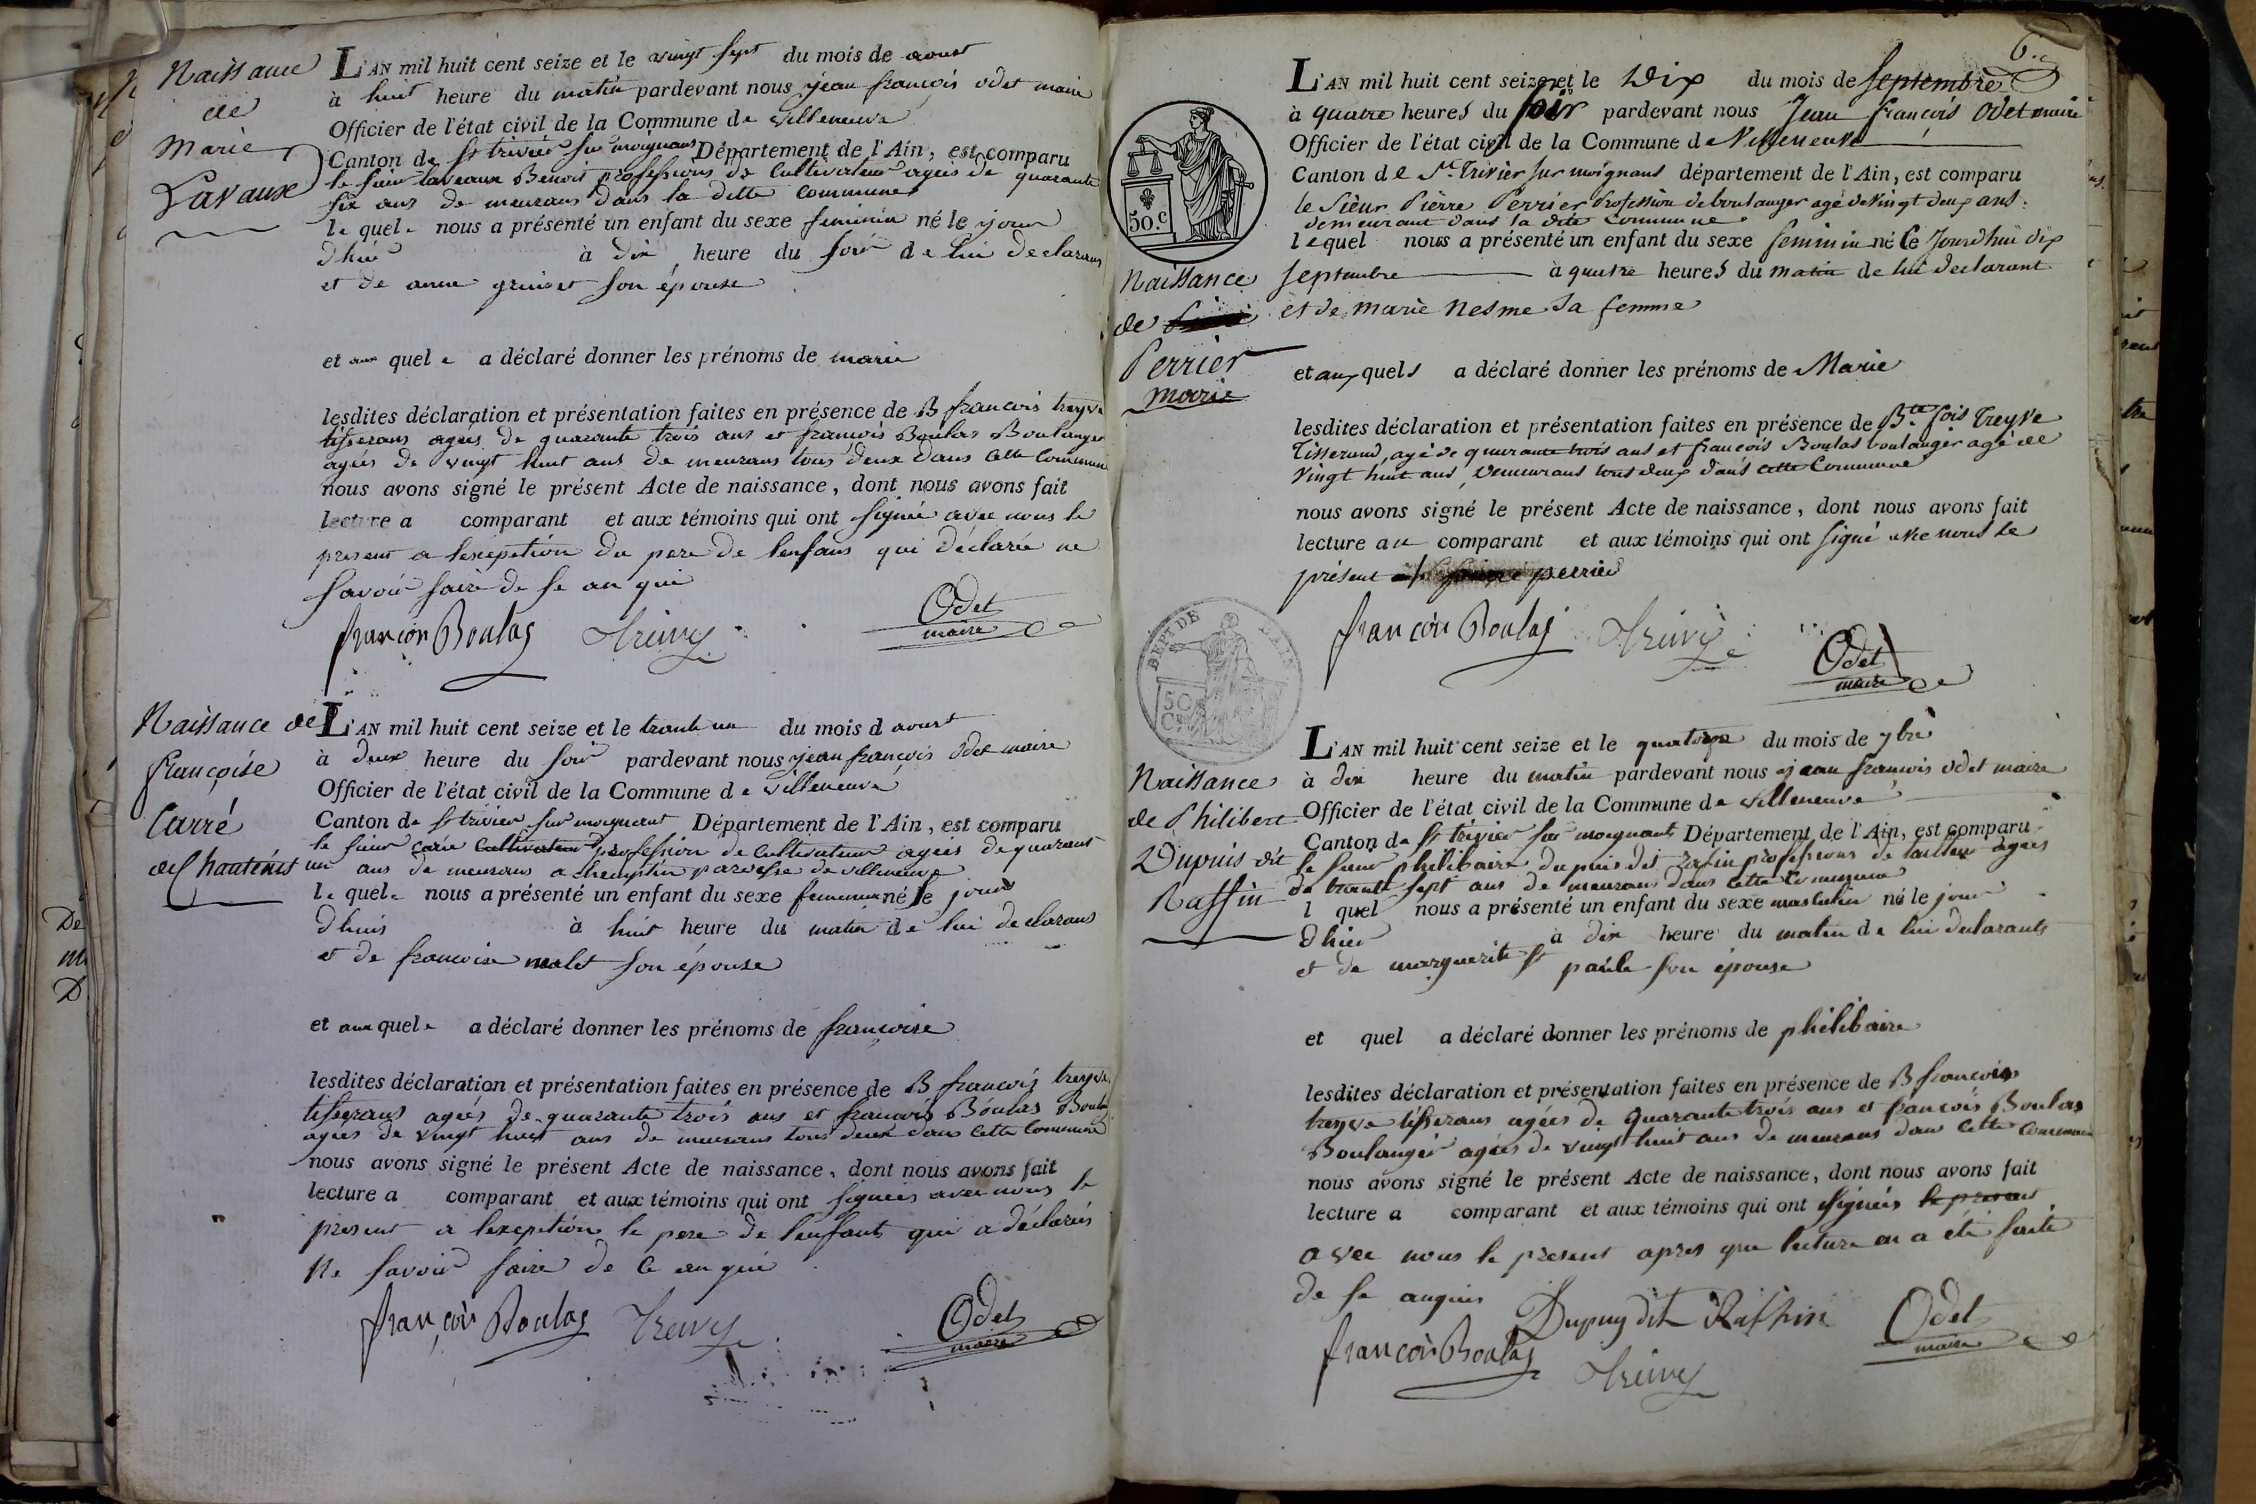 Naissance
de
Marie
Lavaux
L'AN mil huit cent seize et le vingt sept du mois de aoust
à huit heure du matin pardevant nous jean françois odet maire
Officier de l'état civil de la Commune de villeneuve
Canton de St trivier sur moignans Département de l'Ain, est comparu
le sieur laveaux Benoit professions de Cultivateur agees de quarante
six ans de meurans dans la ditte commune
le quel nous a présenté un enfant du sexe feminin né le jour
dhier à dix heure du soir de lui declarans
et de anne son épouse
et aux quele a déclaré donner les prénoms de marie
lesdites déclaration et présentation faites en présence de B francois treyve
tisserans agées de quarante trois ans et francois Boulas Boulanger
agées de vingt huit ans de meurans tous deux dans cette Commune
nous avons signé le présent Acte de naissance, dont nous avons fait
lecture a comparant et aux témoins qui ont signée avec nous le
present a lexeption du pere de lenfans qui déclarée ne
savoir faire de se an qui
françois Boulas Treive Odet
maire
Naissance de
françoise
Carré
de Chanteins
L'AN mil huit cent seize et le trante un du mois d aoust
à deux heure du soir pardevant nous jean francois Odet maire
Officier de l'état civil de la Commune de villeneuve
Canton de St trivier sur moignant Département de l'Ain, est comparu
le sieur carée cultivateur profession de Cultivateur agees de quarant
un ans de meurans a paroisse de villeneuve
le quele nous a présenté un enfant du sexe femenin né le jour
dhuis à huit heure du matin de lui declarans
et de francoise malet son épouse
et aux quele a déclaré donner les prénoms de francoise
lesdites déclaration et présentation faites en présence de B francois treyve
tisserans agées de quarante trois ans et francois Boulas Boulan
agees de vingt huit ans de meurans tous deux dans cette Commune
nous avons signé le présent Acte de naissance, dont nous avons fait
lecture a comparant et aux témoins qui ont signées avec nous le
present a lexception le pere de lenfants qui a déclarés
Ne savoir faire de Ce en qui
françois Boulas Treive Odet
maire
6.e
50.c
Naissance
de
Perrier
marie
L'AN mil huit cent seize et le Dix du mois de Septembre
à quatre heures du soir pardevant nous Jean françois Odet maire
Officier de l'état civil de la Commune de Villeneuve
Canton de St. Trivier sur moignans département de l'Ain, est comparu
le Sieur Pierre Perrier Profession de boulanger agé de Vingt deux ans
demeurant dans la dite commune
lequel nous a présenté un enfant du sexe feminin né le Jourd'hui dix
septembre à quatre heures du matin de lui declarant
et de marie Nesme sa femme
et aux quels a déclaré donner les prénoms de Marie
lesdites déclaration et présentation faites en présence de Bte. fois Treyve
Tisserand, agé de quarante trois ans et françois Boulas boulanger agé de
Vingt huit ans, demeurans tous deux dans cette Commune
nous avons signé le présent Acte de naissance, dont nous avons fait
lecture au comparant et aux témoins qui ont signé avec nous le
présent perrier
françois Boulas Treive Odet
maire
DEPT DE L'AIN
50
Cs
Naissance
de Philibert
Dupuis dit
Raffin
L'AN mil huit cent seize et le quatorze du mois de 7bre
à dix heure du matin pardevant nous jean francois odet maire
Officier de l'état civil de la Commune de villeneuve
Canton de St trivier sur moignans Département de l'Ain, est comparu
le sieur philibaire dupuis dit rafin professions de tailleur agees
de trante sept ans de meurans dans cette Commune
l quel nous a présenté un enfant du sexe masculin né le jour
dhier à dix heure du matin de lui declarants
et de marguerite St paule son épouse
et quel a déclaré donner les prénoms de philibaire
lesdites déclaration et présentation faites en présence de B francois
treyve tisserans agées de quarante trois ans et francois Boulas
Boulanger agées de vingt huit ans de meurans dans cette Commune
nous avons signé le présent Acte de naissance, dont nous avons fait
lecture a comparant et aux témoins qui ont signées le present
avec nous le present apres que lecture en a été faite
de se anquis Dupuy dit Raffin Odet
maire
françois Boulas Treive